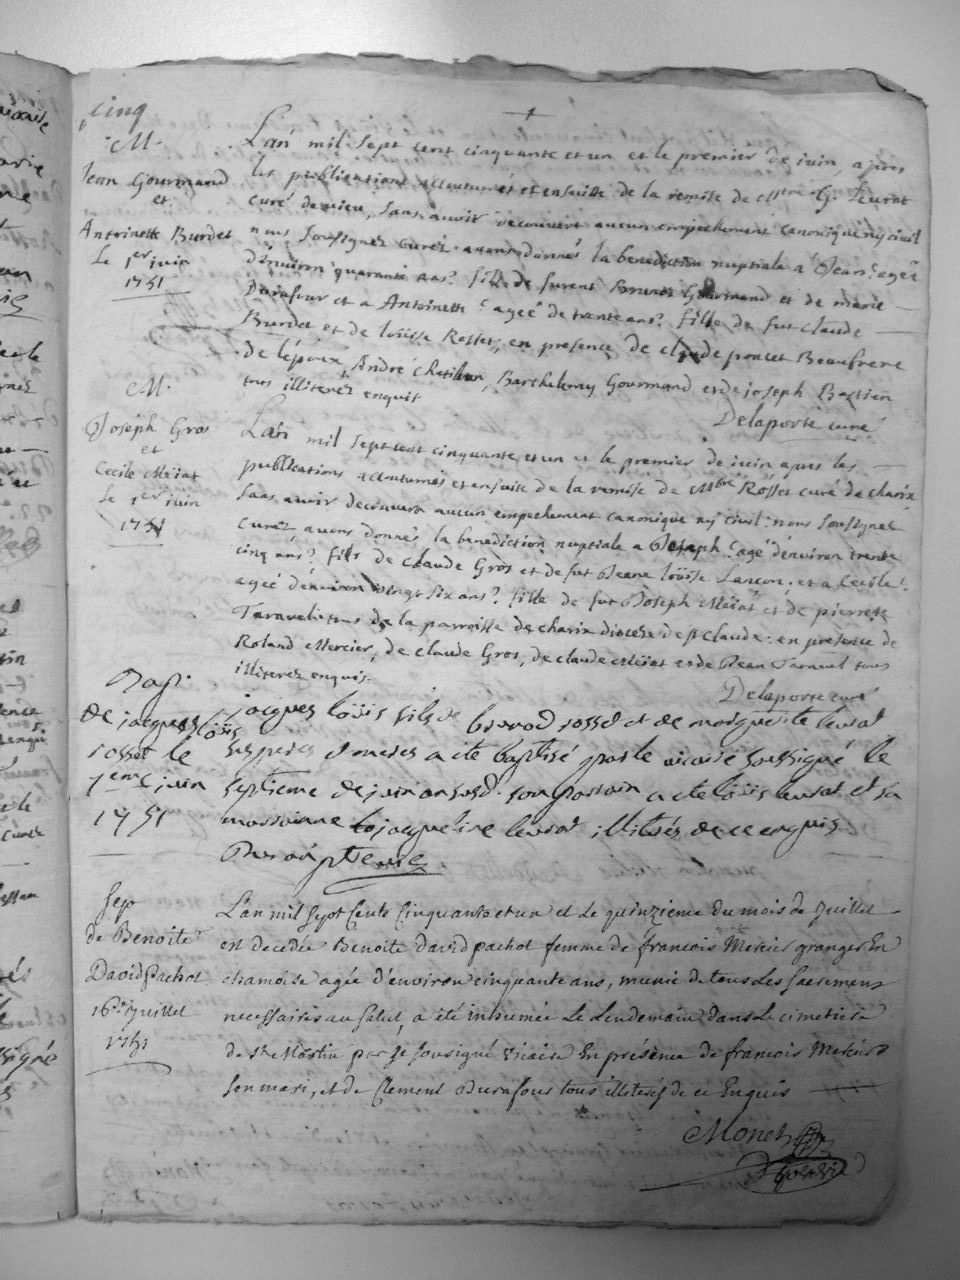 cinq
M.
Jean Gourmand
et
Antoinette Burdet
Le 1er juin
1751
L'an mil sept cent cinquante et un et le premier de juin, apres
les publications accoutumés et ensuitte de la remise de Mtre G. Leurat
curé de vieu, sans avoir decouvert aucun empechement canonique ny civil
nous soussignez curéz avons donnés la benediction nuptiale a Jean agé
d'environ quarante ans? fils de furent Gourmand et de marie
Durafour et a Antoinette agée de trente ans? fille de fut Claude
Burdet et de loüisse Rosset, en presence de claude poncet Beaufrere
de l'époix, André Chatillon, Barthelemy Gourmand et de joseph Bastien
tous illiterez enquis
Delaporte curé
M.
Joseph Gros
et
Cecile Meïat
Le 1er juin
1751
L'an mil sept cent cinquante et un et le premier de juin apres les
publications accoutumés et ensuite de la remise de Mtre Rosset curé de charix
sans avoir decouvert aucun empechement canonique ny civil: nous soussignez
curéz avons donnés la benediction nuptiale a Joseph agé d'environ trente
cinq ans? fils de Claude Gros et de fut Jeane loüise Lancon; et a Cecile
agée d'environ vingt six ans? fille de fut Joseph Meïat et de pierrette
Taravel tous de la parroisse de charix diocése de St Claude: en presence de
Roland Mercier, de Claude Gros, de claude Meïat et de Jean Taravel tous
illiterez enquis.
Delaporte curé
Bapt.
de jacques loüis
rosset le
7eme juin
1751
jacques loüis fils de rosset et de marguerite leurat
ses peres et meres a eté baptisé par le vicaire soussigné le
septieme de juin an susd. son parrain a eté loüis leurat et sa
marrainne jacqueline leurat illiterés de ce enquis
vic
Sep
de Benoite
David Pachot
16e Juillet
1751
L'an mil sept Cents Cinquante et un et Le quinzieme du mois de Juillet
est decedée Benoite David pachot femme de françois Mercier granger En
chamoise agée d'environ cinquante ans, munie de tous Les sacremens
necessaires au salut, a été inhumée Le Lendemain dans Le cimetiere
de St Martin par Je sousigné vicaire En présence de francois Mercier
son mari, et de Clement Durafour tous illiterés de ce Enquis
Monet